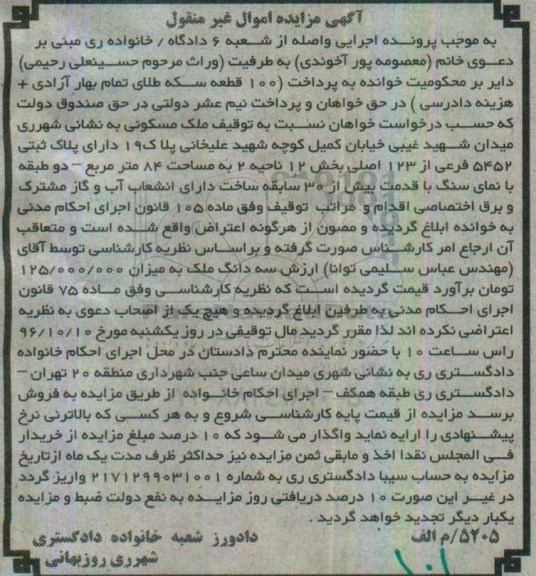 آگهی مزایده اموال غیر منقول
به موجب پرونده اجرایی واصله از شعبه ۶ دادگاه / خانواده ری مبنی بر
دعوی خانم (معصومه پور آخوندی) به طرفیت (وراث مرحوم حسینعلی رحیمی)
دایر بر محکومیت خوانده به پرداخت (۱۰۰ قطعه سکه طلای تمام بهار آزادی +
هزینه دادرسی ) در حق خواهان و پرداخت نیم عشر دولتی در حق صندوق دولت
که حسب درخواست خواهان نسبت به توقیف ملک مسکونی به نشانی شهرری
میدان شهید غیبی خیابان کمیل کوچه شهید علیخانی پلاک۱۹ دارای پلاک ثبتی
۵۴۵۲ فرعی از ۱۲۳ اصلی بخش ۱۲ ناحیه ۲ به مساحت ۸۴ متر مربع – دو طبقه
با نمای سنگ با قدمت بیش از ۳۰ سابقه ساخت دارای انشعاب آب و گاز مشترک
و برق اختصاصی اقدام و مراتب توقیف وفق ماده ۱۰۵ قانون اجرای احکام مدنی
به خوانده ابلاغ گردیده و مصون از هرگونه اعتراض واقع شده است و متعاقب
آن ارجاع امر کارشناس صورت گرفته و براساس نظریه کارشناسی توسط آقای
(مهندس عباس سلیمی توانا) ارزش سه دانگ ملک به میزان ۱۲۵/۰۰۰/۰۰۰
تومان برآورد قیمت گردیده است که نظریه کارشناسی وفق ماده ۷۵ قانون
اجرای احکام مدنی به طرفین ابلاغ گردیده و هیچ یک از اصحاب دعوی به نظریه
اعتراضی نکرده اند لذا مقرر گردید مال توقیفی در روز یکشنبه مورخ ۹۶/۱۰/۱۰
راس ساعت ۱۰ با حضور نماینده محترم دادستان در محل اجرای احکام خانواده
دادگستری ری به نشانی شهری میدان ساعی جنب شهرداری منطقه ۲۰ تهران –
دادگستری ری طبقه همکف – اجرای احکام خانواده از طریق مزایده به فروش
برسد مزایده از قیمت پایه کارشناسی شروع و به هر کسی که بالاترنی نرخ
پیشنهادی را ارایه نماید واگذار می شود که ۱۰ درصد مبلغ مزایده از خریدار
فی المجلس نقدا اخذ و مابقی ثمن مزایده نیز حداکثر ظرف مدت یک ماه ازتاریخ
مزایده به حساب سیبا دادگستری ری به شماره ۲۱۷۱۲۹۹۰۳۱۰۰۱ واریز گردد
در غیر این صورت ۱۰ درصد دریافتی روز مزایده به نفع دولت ضبط و مزایده
یکبار دیگر تجدید خواهد گردید .
۵۲۰۵/م الف دادورز شعبه خانواده دادگستری
شهرری روزبهانی
۱۰۱